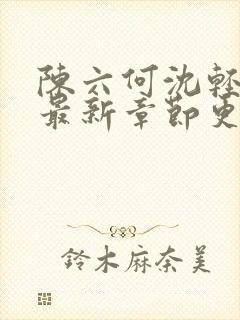 陳六何沈輕
最新章節更
鈴木麻奈美